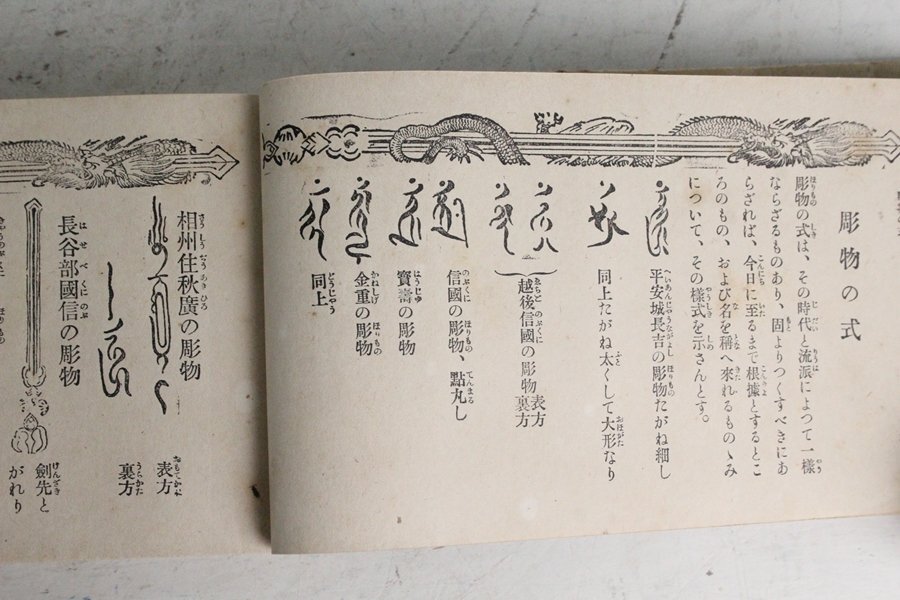 彫物の式
彫物の式は、その時代と流派によつて一樣
ならざるものあり、固よりつくすべきにあ
らざれば、今日に至るまで根據とするとこ
ろのもの、および名を稱へ來れるものゝみ
について、その樣式を示さんとす。
平安城長吉の彫物たがね細し
同上たがね太くして大形なり
越後信國の彫物 表方 裏方
信國の彫物、點丸し
寳壽の彫物
金重の彫物
同上
相州住秋廣の彫物
表方
裏方
長谷部國信の彫物
劍先と
がれり